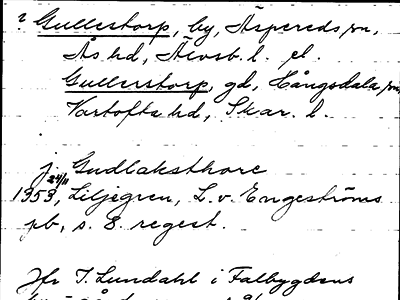 ? Gullestorp, by, Äspereds sn,
Ås hd, Älvsb. l. el.
Gullerstorp, gd, Hångsdala sn,
Vartofta hd, Skar. l.
j Gudlaksthore
24/11
1353, Liljegren, L. v. Engeströms
pb, s. 8. regest.
Jfr I. Lundahl i Falbygdens